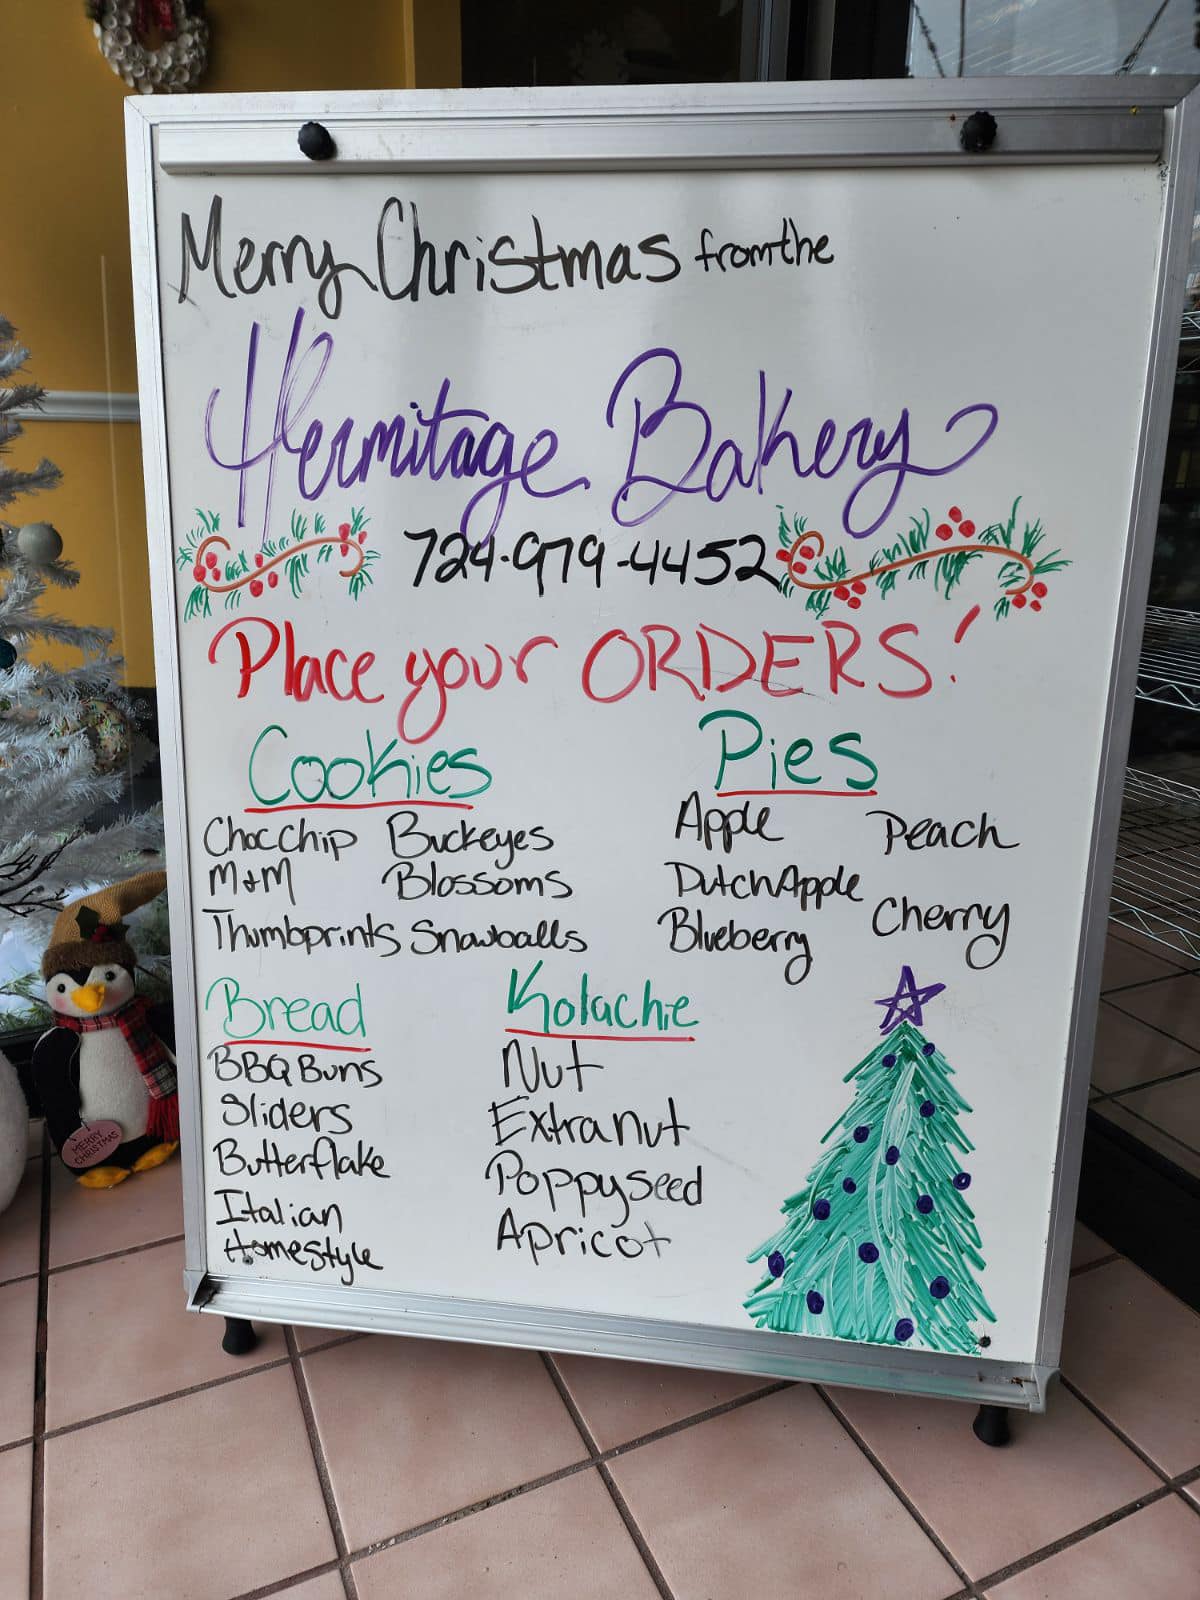 Merry Christmas from the
Hermitage Bakery
724-979-4452
Place your ORDERS!
Cookies
Choc Chip Buckeyes
M+M Blossoms
Thumbprints Snowballs
Pies
Apple Peach
Dutch Apple
Blueberry Cherry
Bread
BBQ Buns
Sliders
Butterflake
Italian
Homestyle
Kolachie
Nut
Extra nut
Poppyseed
Apricot
MERRY
CHRISTMAS